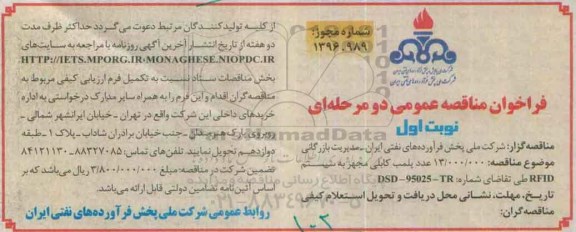 شماره مجوز:
۱۳۹۶.۹۸۹
شرکت ملی پخش فرآورده‌های نفتی ایران
فراخوان مناقصه عمومی دو مرحله‌ای
نوبت اول
مناقصه گزار: شرکت ملی پخش فرآورده‌های نفتی ایران-مدیریت بازرگانی
موضوع مناقصه: ۱۳/۰۰۰/۰۰۰ عدد پلمب کابلی مجهز به
RFID طی تقاضای شماره: DSD – 95025 – TR
تاریخ، مهلت، نشانی محل دریافت و تحویل استعلام کیفی
مناقصه گران:
از کلیه تولیدکنندگان مرتبط دعوت می‌گردد حداکثر ظرف مدت
دو هفته از تاریخ انتشار آخرین آگهی روزنامه با مراجعه به سایت‌های
HTTP://IETS.MPORG.IR،MONAGHESE.NIOPDC.IR
بخش مناقصات ستاد نسبت به تکمیل فرم ارزیابی کیفی مربوط به
مناقصه گران اقدام و این فرم را به همراه سایر مدارک درخواستی به اداره
خریدهای داخلی این شرکت واقع در تهران - خیابان ایرانشهر شمالی -
روبروی پارک هنرمندان - جنب خیابان برادران شاداب - پلاک ۱ - طبقه
دوازدهم تحویل نمایند. تلفن‌های تماس: ۸۸۳۲۷۰۸۵ - ۸۴۱۲۱۱۳۰
تضمین شرکت در مناقصه مبلغ ۳/۸۰۰/۰۰۰/۰۰۰ ریال می‌باشد که بر
اساس آئین نامه تضامین دولتی قابل ارائه می‌باشد.
روابط عمومی شرکت ملی پخش فرآورده‌های نفتی ایران
۱۰۲